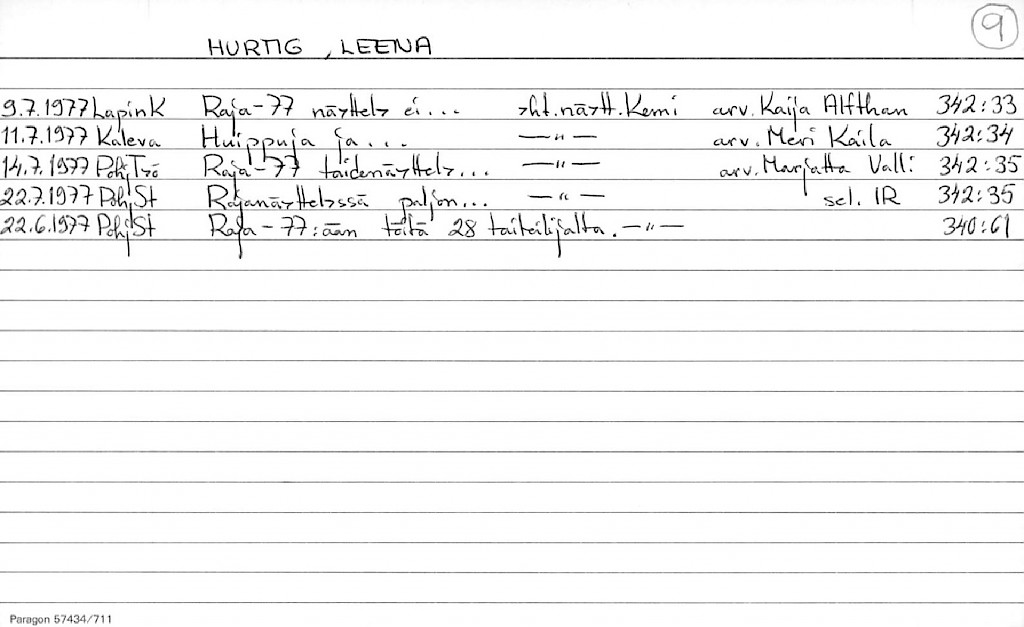 9
HURTIG, LEENA
9.7.1977 LapinK Raja-77 näyttely ei... yht.näytt. Kemi arv. Kaija Alfthan 342:33
11.7.1977 Kaleva Huippuja ja... —"— arv. Meri Kaila 342:34
14.7.1977 PohjTyö Raja-77 taidenäyttely... —"— arv. Marjatta Valli 342:35
22.7.1977 PohjSt Rajanäyttelyssä paljon... —"— sel. IR 342:35
22.6.1977 PohjSt Raja-77:ään töitä 28 taiteilijalta. —"— 340:61
Paragon 57434/711